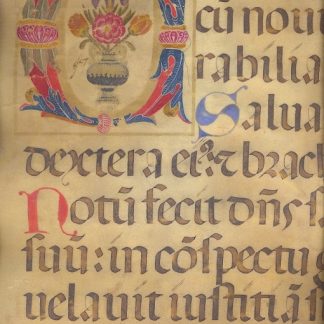 cū nouu
rabilia
Salua
dextera ei⁹: ⁊ brach
Notū fecit dn̄s s
suū: in cōspectu g
uelauit iustitiā s